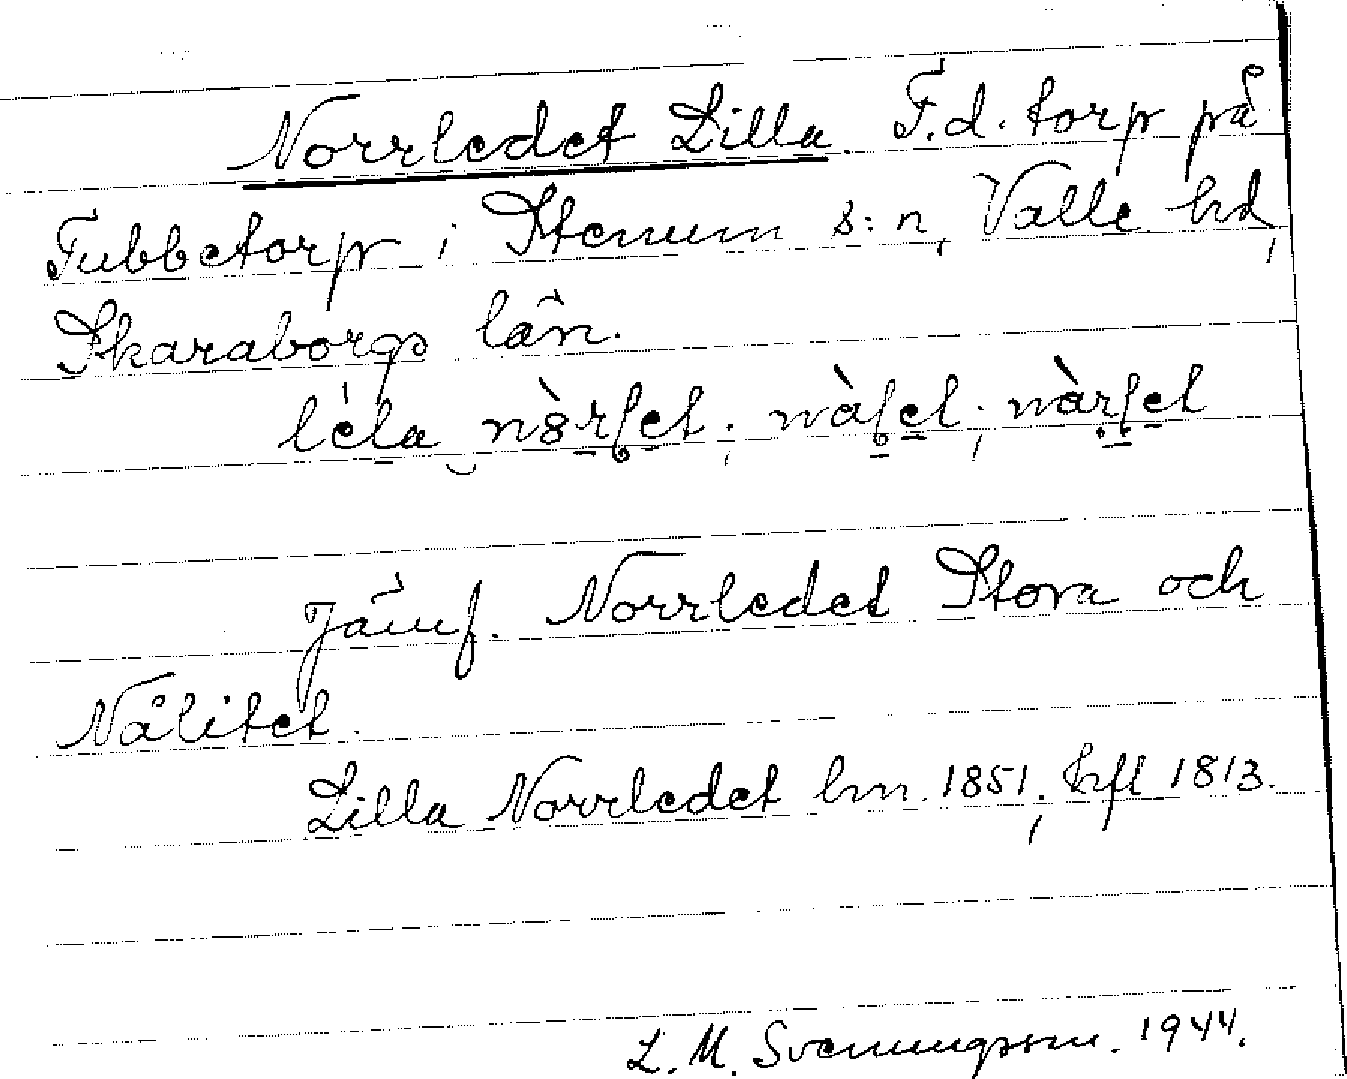 Norrledet Lilla. F.d. torp på
Tubbetorp i Stenum s:n, Valle hd,
Skaraborgs län.
Jämf. Norrledet Stora och
Nålitet.
Lilla Norrledet hm. 1851, hfl 1813.
L. M. Svenungsson. 1944.